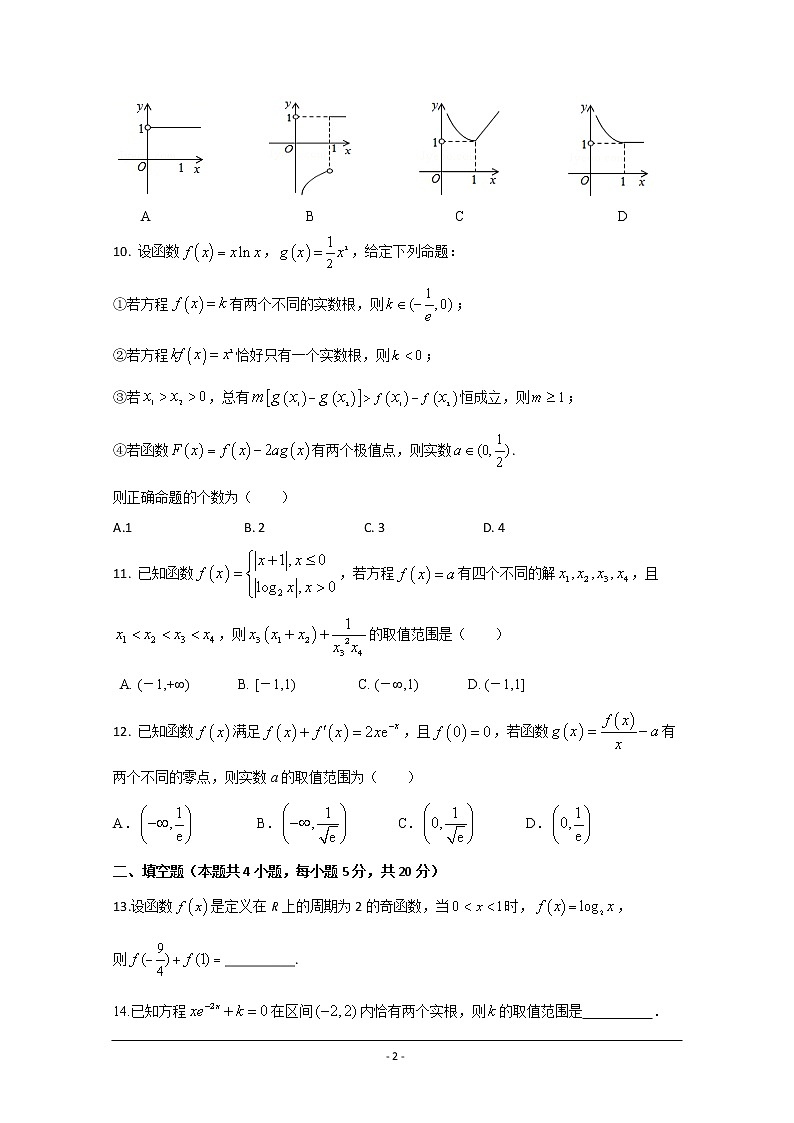 y 1 O 1 x
y 1 O 1 x
y 1 O 1 x
y 1 O 1 x
A B C D
10. 设函数 f(x)=xln x，g(x)=1/2 x²，给定下列命题：
①若方程 f(x)=k 有两个不同的实数根，则 k∈(−1/e,0)；
②若方程 kf(x)=x² 恰好只有一个实数根，则 k<0；
③若 x₁>x₂>0，总有 m[g(x₁)−g(x₂)]>f(x₁)−f(x₂) 恒成立，则 m≥1；
④若函数 F(x)=f(x)−2ag(x) 有两个极值点，则实数 a∈(0,1/2).
则正确命题的个数为（　　）
A.1 B. 2 C. 3 D. 4
11. 已知函数 f(x)={|x+1|, x≤0 |log₂ x|, x>0，若方程 f(x)=a 有四个不同的解 x₁,x₂,x₃,x₄，且
x₁<x₂<x₃<x₄，则 x₃(x₁+x₂)+1/(x₃²x₄) 的取值范围是（　　）
A. (－1,+∞) B. [－1,1) C. (－∞,1) D. (－1,1]
12. 已知函数 f(x) 满足 f(x)+f′(x)=2xe⁻ˣ，且 f(0)=0，若函数 g(x)=f(x)/x−a 有
两个不同的零点，则实数 a 的取值范围为（　　）
A．(−∞,1/e) B．(−∞,1/√e) C．(0,1/√e) D．(0,1/e)
二、填空题（本题共 4 小题，每小题 5 分，共 20 分）
13.设函数 f(x) 是定义在 R 上的周期为 2 的奇函数，当 0<x<1 时，f(x)=log₂ x，
则 f(−9/4)+f(1)= __________.
14.已知方程 xe⁻²ˣ+k=0 在区间 (−2,2) 内恰有两个实根，则 k 的取值范围是__________．
- 2 -